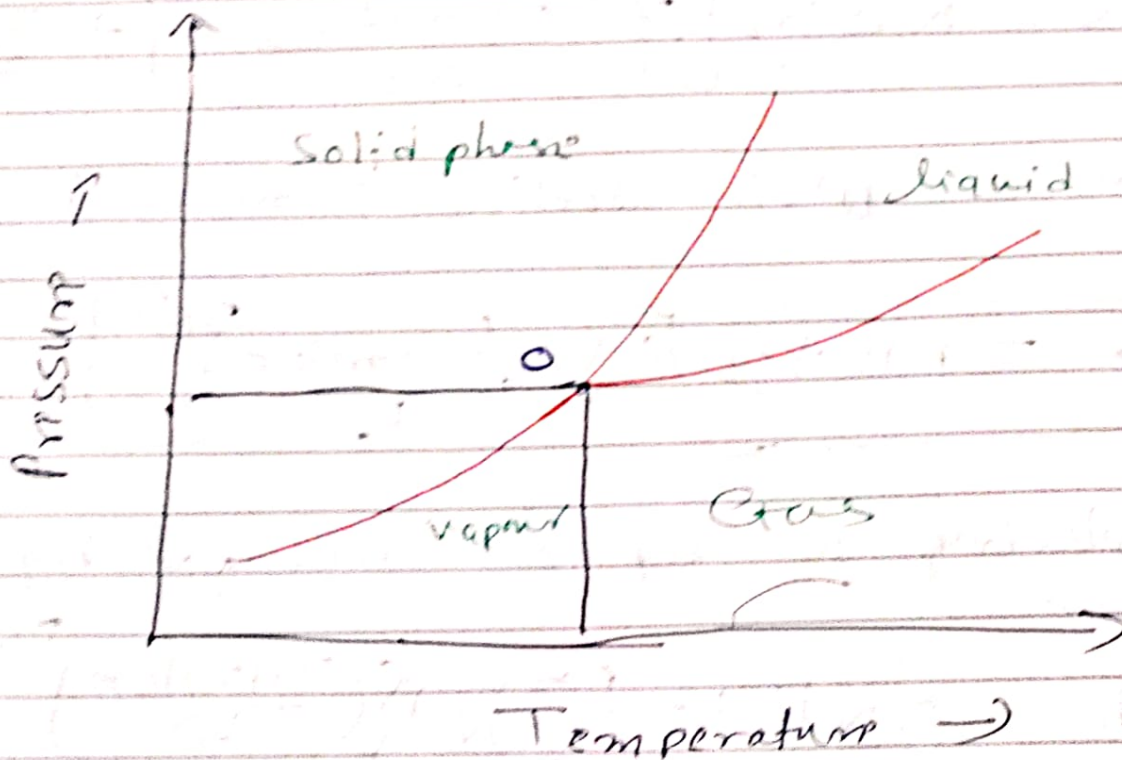 Solid phase
liquid
Pressure →
O
vapour
Gas
Temperature →